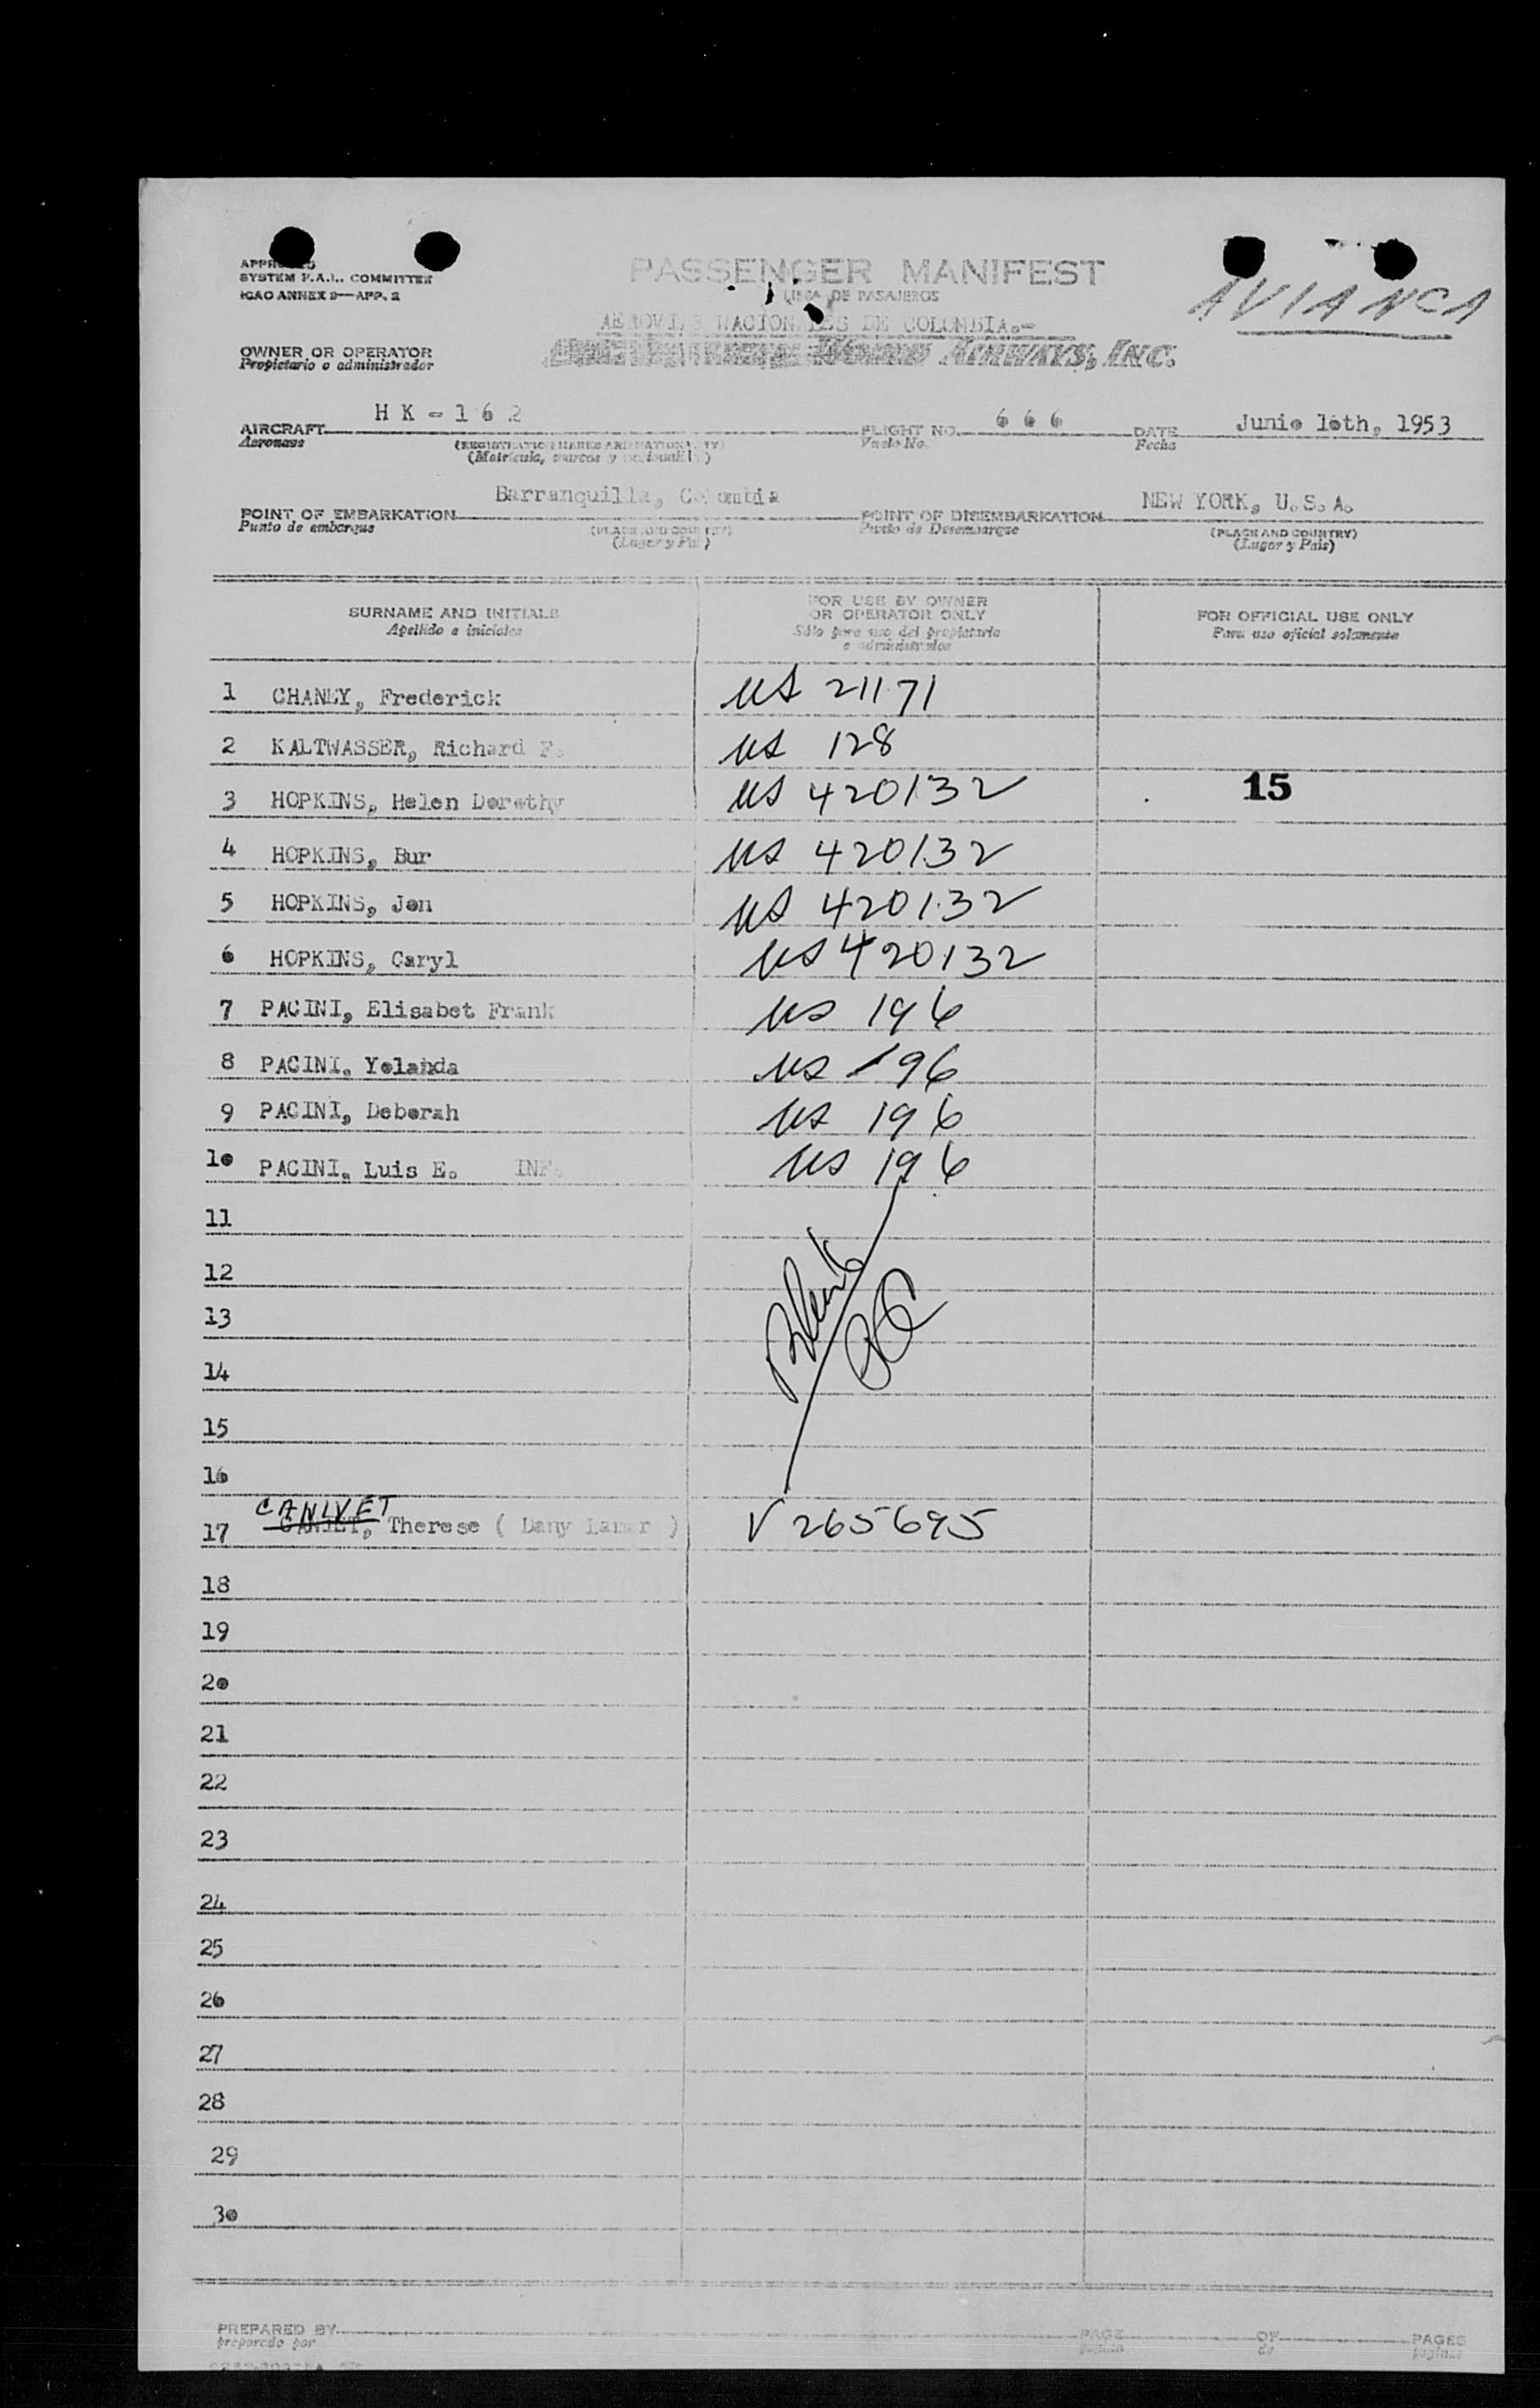 APPROVED
SYSTEM F.A.L. COMMITTEE
ICAO ANNEX 9—APP. 2
PASSENGER MANIFEST
LISTA DE PASAJEROS
AVIANCA
AEROVIAS NACIONALES DE COLOMBIA.-
OWNER OR OPERATOR
Propietario o administrador
WORLD AIRWAYS, INC.
AIRCRAFT HK-162 FLIGHT NO. 666 DATE Junio 16th, 1953
Aeronave (REGISTRATION MARKS AND NATIONALITY) Vuelo No. Fecha
(Matrícula, marcas y nacionalidad)
POINT OF EMBARKATION Barranquilla, Colombia POINT OF DISEMBARKATION NEW YORK, U.S.A.
Punto de embarque (PLACE AND COUNTRY) Punto de Desembarque (PLACE AND COUNTRY)
(Lugar y País) (Lugar y País)
SURNAME AND INITIALS FOR USE BY OWNER OR OPERATOR ONLY FOR OFFICIAL USE ONLY
Apellido e iniciales Sólo para uso del propietario o administrador Para uso oficial solamente
1 CHANEY, Frederick US 21171
2 KALTWASSER, Richard F. US 128
3 HOPKINS, Helen Dorothy US 420132 15
4 HOPKINS, Bur US 420132
5 HOPKINS, Jon US 420132
6 HOPKINS, Caryl US 420132
7 PACINI, Elisabet Frank US 196
8 PACINI, Yolanda US 196
9 PACINI, Deborah US 196
10 PACINI, Luis E. INF. US 196
11
12
13
14
15
16
CANIVET
17 CANIET, Therese ( Dany Lamar ) V 265695
18
19
20
21
22
23
24
25
26
27
28
29
30
PREPARED BY PAGE OF PAGES
preparado por página de páginas